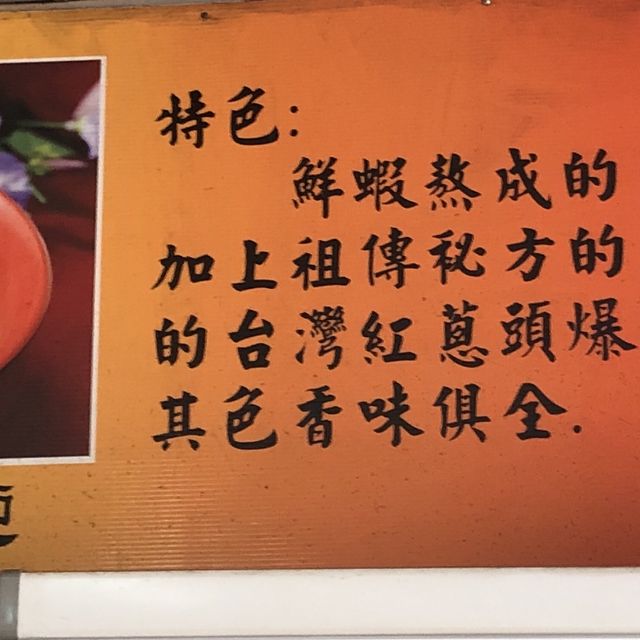 特色:
鮮蝦熬成的
加上祖傳秘方的
的台灣紅蔥頭爆
其色香味俱全.